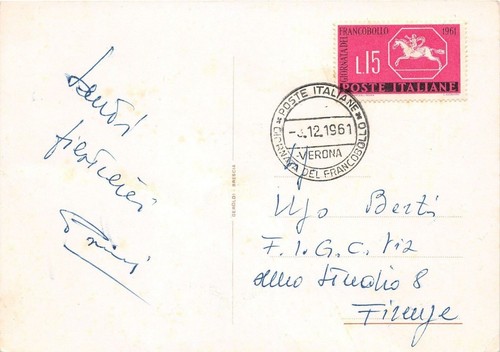 GIORNATA DEL FRANCOBOLLO 1961
L.15
POSTE ITALIANE
POSTE ITALIANE
-3.12.1961
VERONA
GIORNATA DEL FRANCOBOLLO
Saluti
Ugo Berti
F.I.G.C. Via
dello Studio 8
Firenze